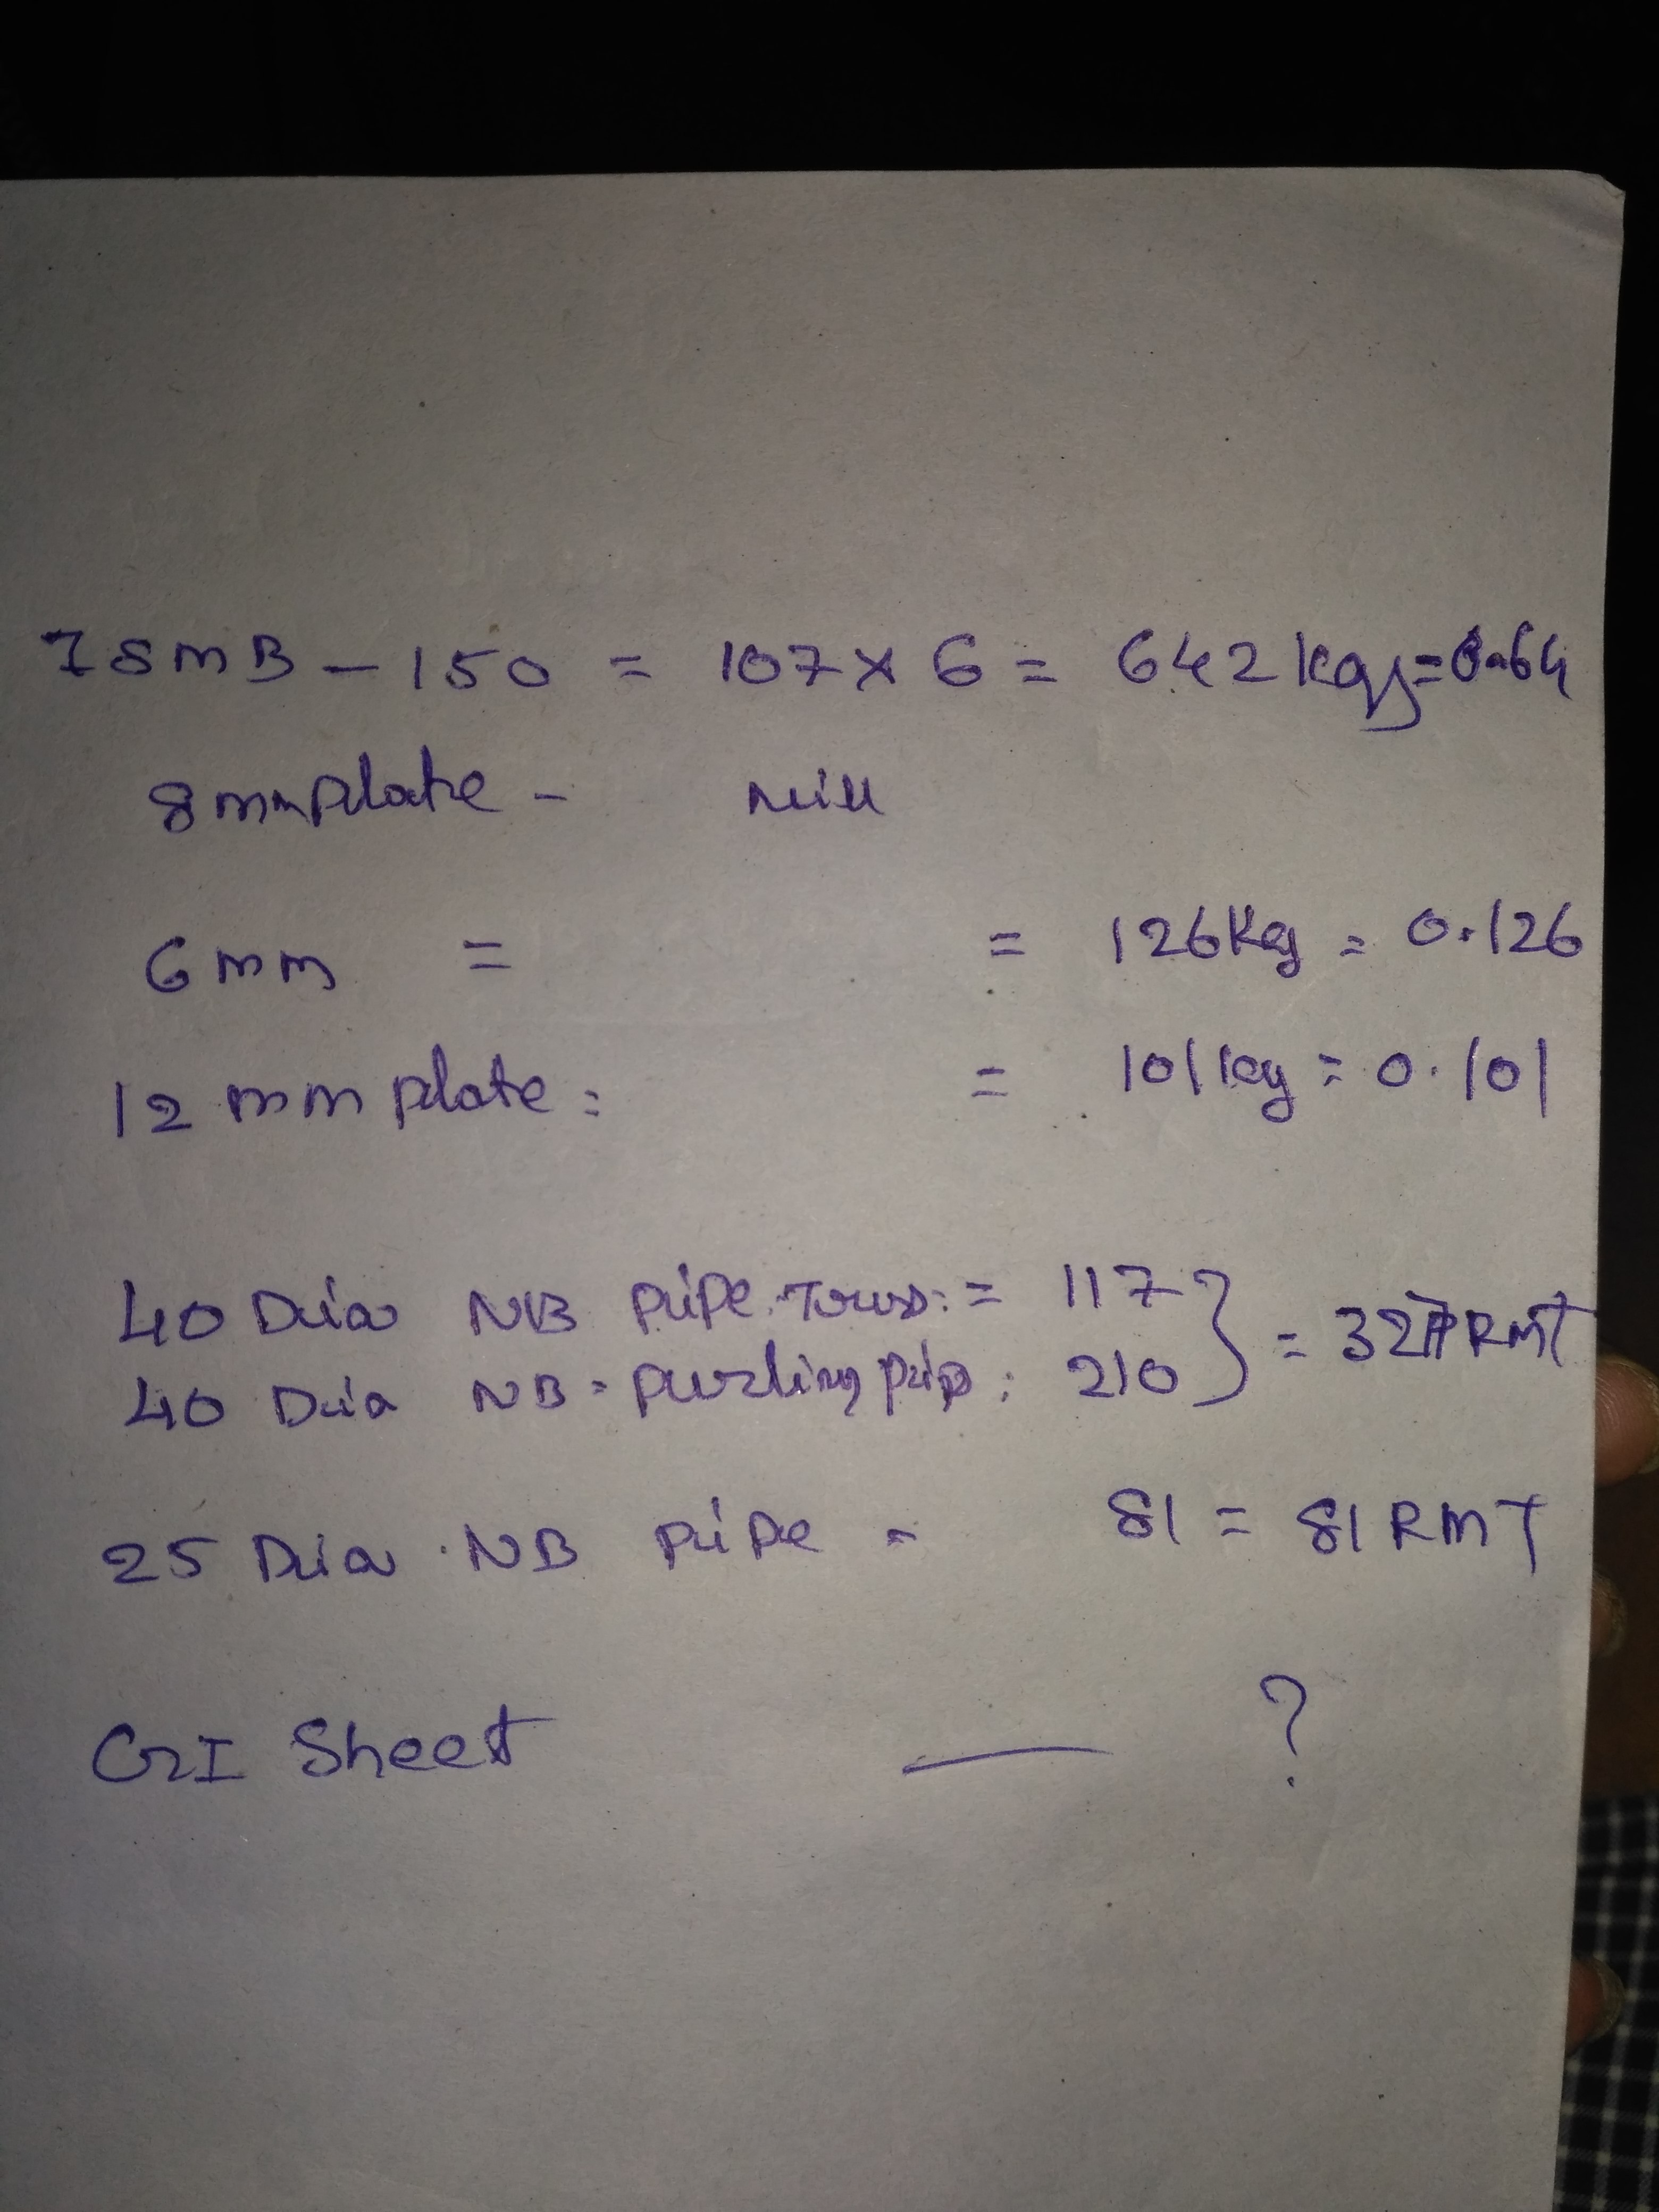 ISMB - 150 = 107 x 6 = 642 kgs = 0.64
8mm plate - nill
6mm = = 126 Kg = 0.126
12 mm plate = = 101 kg = 0.101
40 Dia NB pipe Truss = 117
40 Dia NB - purling pip : 210 } = 327 RMT
25 Dia NB pipe = 81 = 81 RMT
GI Sheet — ?